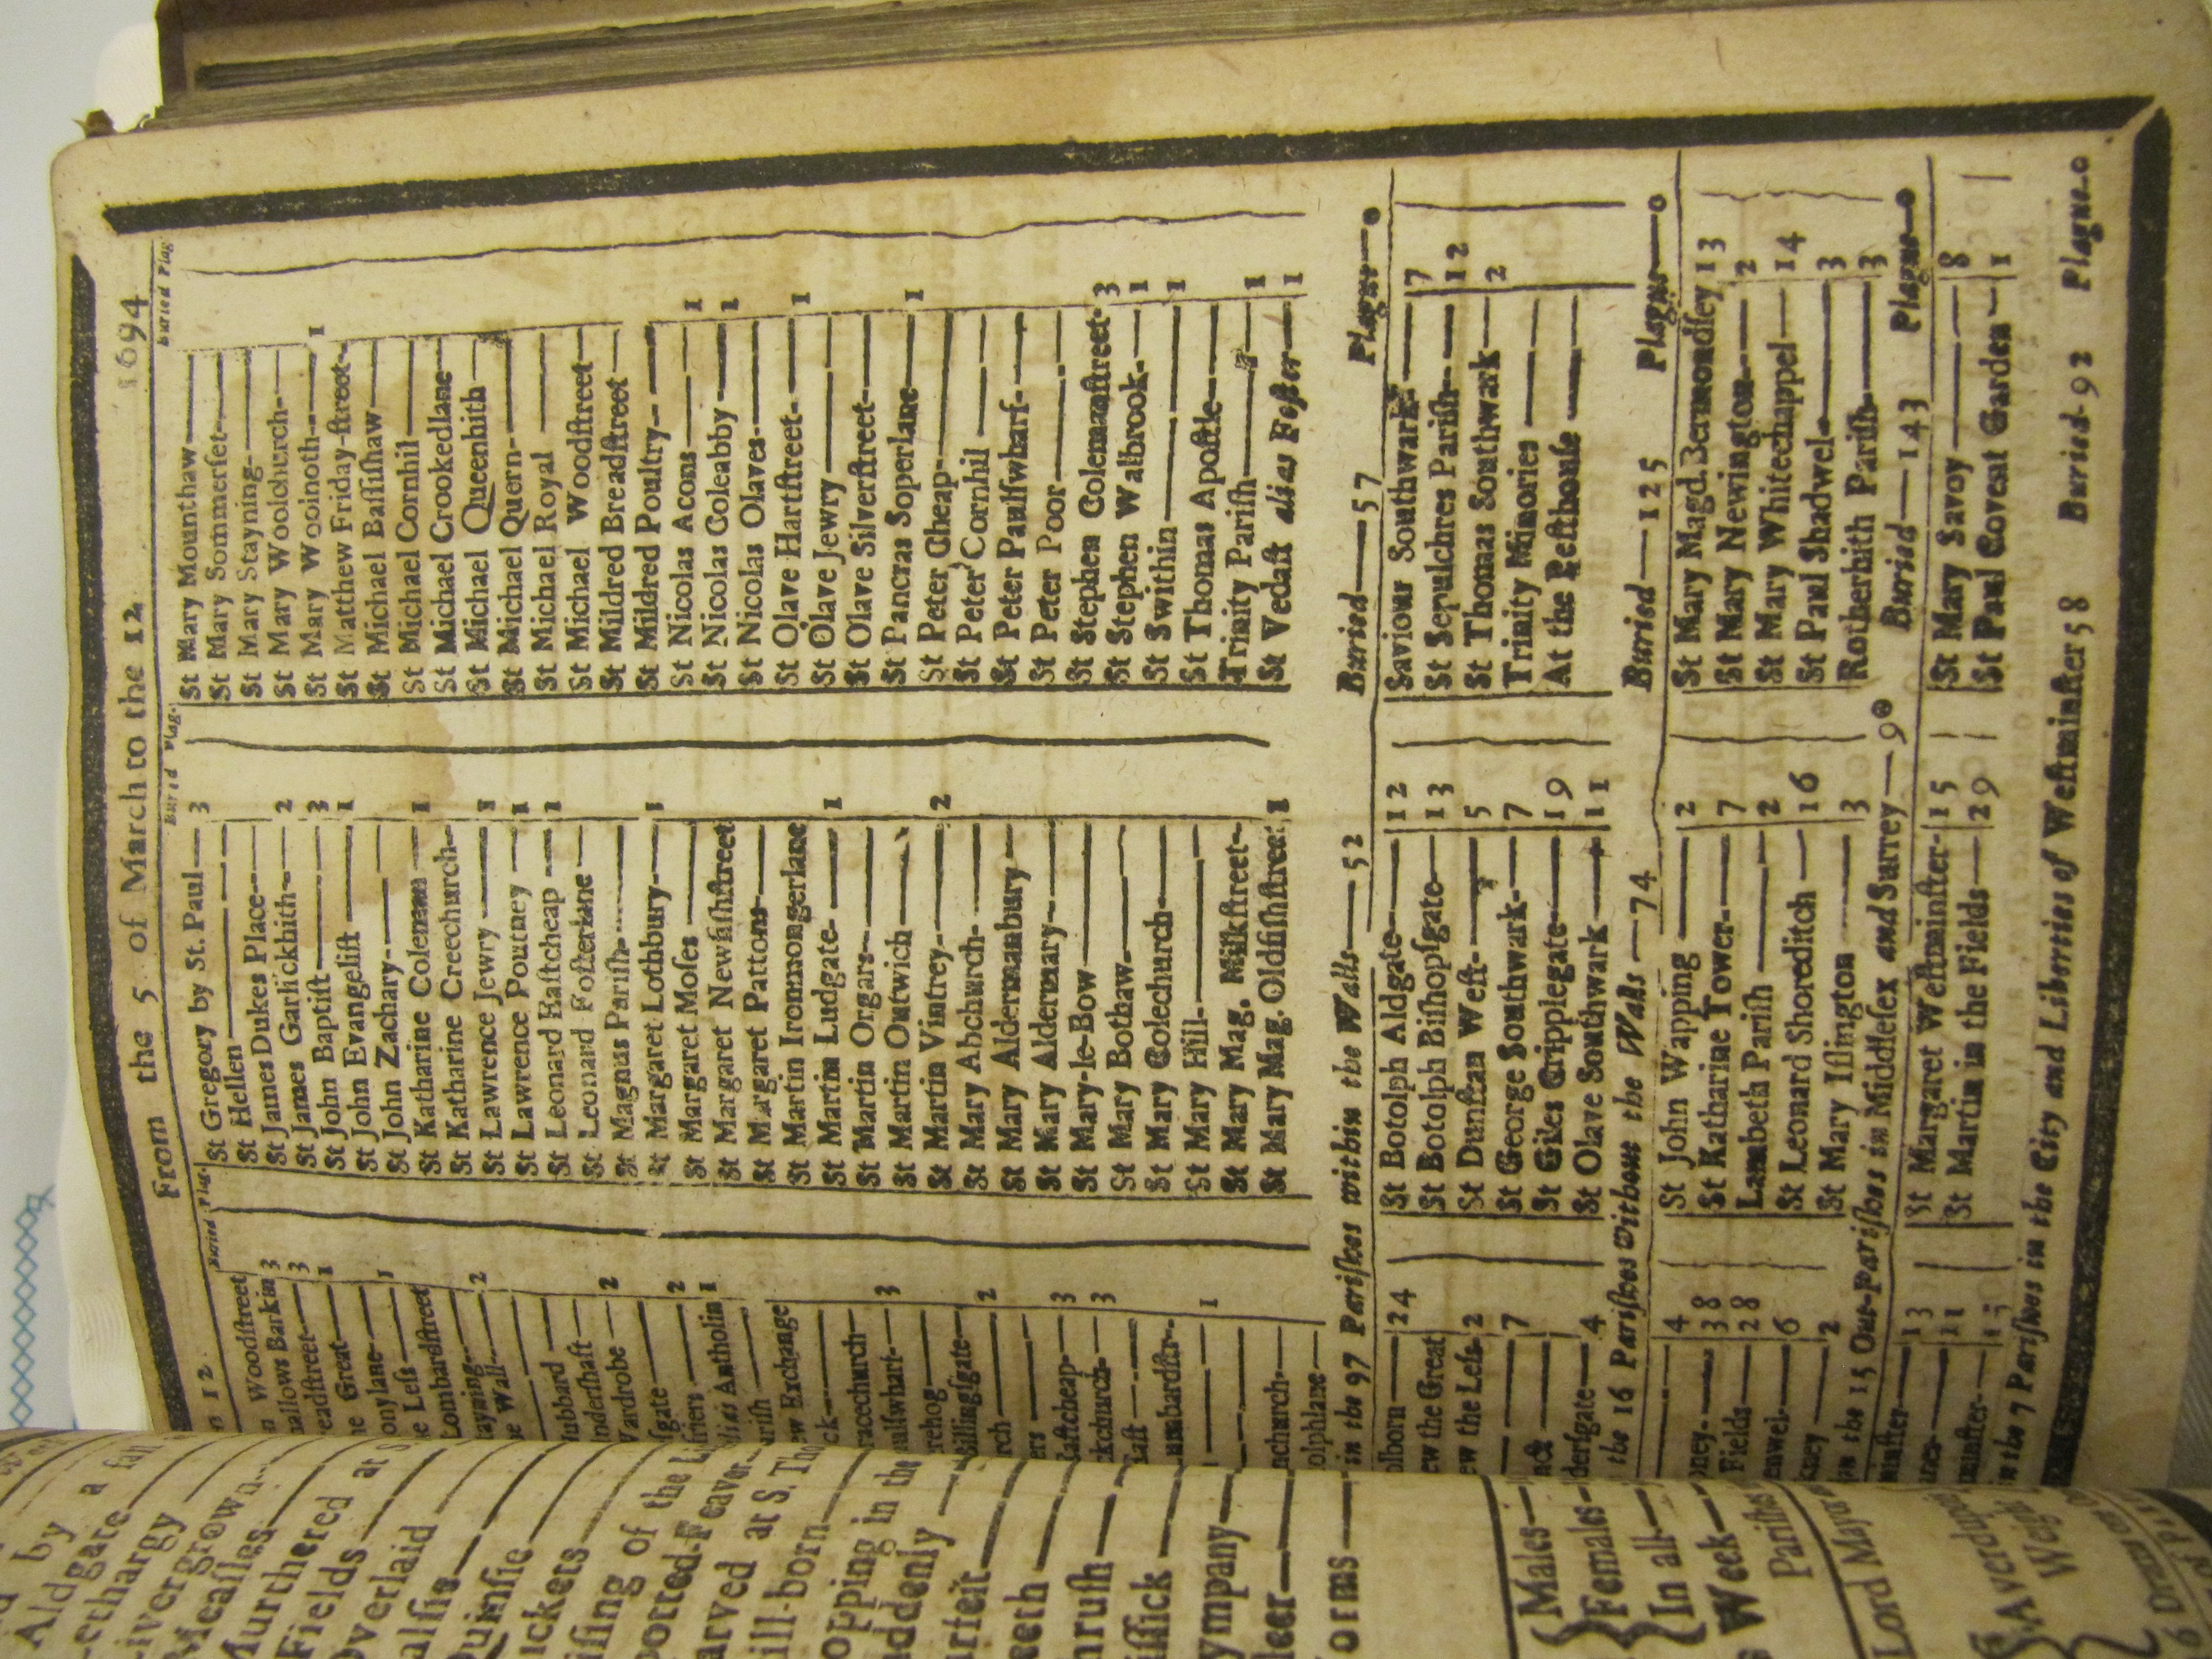 by a fall
Aldgate
Lethargy
Livergrown
Meaſles
Murthered at S
Fields
Overlaid
Palſie
Quinſie
Rickets
Riſing of the Li
Spotted-Feaver
Starved at S. Tho
Still-born
Stopping in the
Suddenly
Teeth
Thruſh
Tiſſick
Tympany
Worms
Males
Females
In all
Week
Pariſhes
Lord Major
Averdupoi
Weigh
From the 5 of March to the 12 1694
12
Buried Plag.
Woodſtreet
hallows Barkin 3
readſtreet 3
he Great 1
onylane 1
e Leſs
Lombardſtreet
tayning 2
e Wall
ubbard
nderſhaft
Wardrobe 2
ſgate 2
friers 1
alias Antholin 1
ariſh
ew Exchange
ck
racechurch
aulſwharf 3
rehog
Billingſgate 2
rch
ers
Eaſtcheap 3
kchurch 3
Eaſt
umbardſtr. 1
nchurch
olphlane
Buried Plag.
St Gregory by St. Paul 3
St Hellen
St James Dukes Place
St James Garlickhith 2
St John Baptiſt 3
St John Evangeliſt 1
St John Zachary
St Katharine Coleman 1
St Katharine Creechurch
St Lawrence Jewry 1
St Lawrence Poutney 1
St Leonard Eaſtcheap 1
St Leonard Foſterlane
St Magnus Pariſh
St Margaret Lothbury 1
St Margaret Moſes
St Margaret Newfiſhſtreet
St Margaret Pattons
St Martin Ironmongerlane
St Martin Ludgate 1
St Martin Orgars
St Martin Outwich
St Martin Vintrey 2
St Mary Abchurch
St Mary Aldermanbury
St Mary Aldermary
St Mary-le-Bow
St Mary Bothaw
St Mary Colechurch
St Mary Hill
St Mary Mag. Milkſtreet
St Mary Mag. Oldfiſhſtreet 1
Buried Plag.
St Mary Mounthaw
St Mary Sommerſet
St Mary Stayning
St Mary Woolchurch
St Mary Woolnoth 1
St Matthew Friday-ſtreet
St Michael Baſſiſhaw
St Michael Cornhil
St Michael Crookedlane
St Michael Queenhith
St Michael Quern
St Michael Royal
St Michael Woodſtreet
St Mildred Breadſtreet
St Mildred Poultry
St Nicolas Acons 1
St Nicolas Coleabby 1
St Nicolas Olaves
St Olave Hartſtreet 1
St Olave Jewry
St Olave Silverſtreet
St Pancras Soperlane 1
St Peter Cheap
St Peter Cornhil
St Peter Paulſwharf
St Peter Poor
St Stephen Colemanſtreet 3
St Stephen Walbrook 1
St Swithin 1
St Thomas Apoſtle
Trinity Pariſh 1
St Vedaſt alias Foſter 1
in the 97 Pariſhes within the Walls—52 Buried—57 Plague—0
olborn 24
ew the Great
ew the Leſs 2
7
derſgate 4
St Botolph Aldgate 12
St Botolph Biſhopſgate 13
St Dunſtan Weſt 5
St George Southwark 7
St Giles Cripplegate 19
St Olave Southwark 11
Saviour Southwark 7
St Sepulchres Pariſh 12
St Thomas Southwark 2
Trinity Minories
At the Peſthouſe
the 16 Pariſhes Without the Walls—74 Buried—125 Plague—0
4
ney 38
Fields 28
enwel 6
kney 2
St John Wapping 2
St Katharine Tower 7
Lambeth Pariſh 2
St Leonard Shoreditch 16
St Mary Iſlington 3
St Mary Magd. Bermondſey 13
St Mary Newington 2
St Mary Whitechappel 14
St Paul Shadwel 3
Rotherhith Pariſh 3
in the 15 Out-Pariſhes in Middleſex and Surrey—90 Buried—143 Plague—0
minſter 13
11
minſter 15
St Margaret Weſtminſter 15
St Martin in the Fields 29
St Mary Savoy 8
St Paul Covent Garden 1
in the 7 Pariſhes in the City and Liberties of Weſtminſter 58 Buried 92 Plague 0